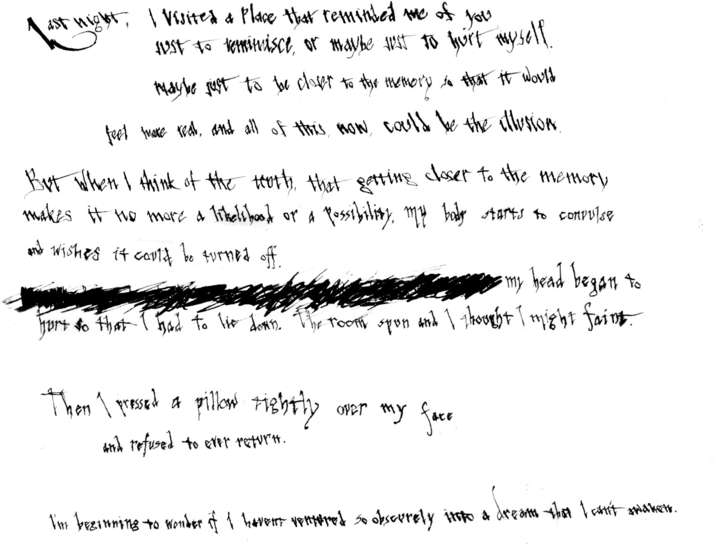 Last night, I visited a place that reminded me of you
just to reminisce, or maybe just to hurt myself.
maybe just to be closer to the memory so that it would
feel more real, and all of this, now, could be the illusion.
But when I think of the truth, that getting closer to the memory
makes it no more a likelihood or a possibility, my body starts to convulse
and wishes it could be turned off.
my head began to
hurt so that I had to lie down. The room spun and I thought I might faint.
Then I pressed a pillow tightly over my face
and refused to ever return.
I'm beginning to wonder if I havent ventured so obscurely into a dream that I can't awaken.